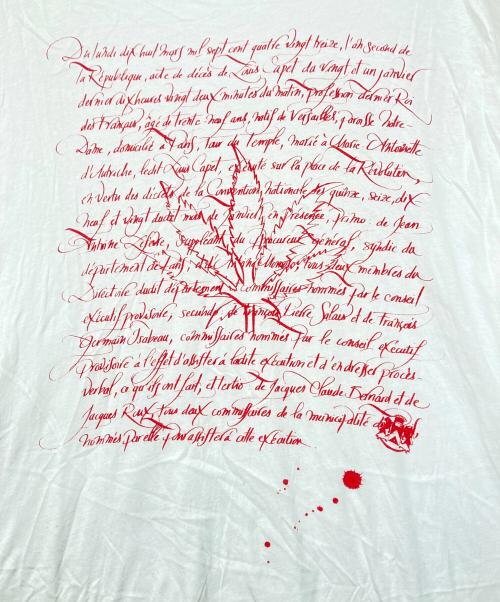 Du lundi dix huit mars mil sept cent quatre vingt treize, l'an second de
la République, acte de décès de Louis Capet du vingt et un janvier
dernier dix heures vingt deux minutes du matin, profession dernier Roi
des français, âgé de trente neuf ans, natif de Versailles, paroisse Notre
Dame, domicilié à Paris, tour du Temple, marié à Marie Antoinette
d'Autriche, ledit Louis Capet, exécuté sur la place de la Révolution,
en vertu des décrets de la Convention nationale des quinze, seize, dix
neuf et vingt dudit mois de janvier, en présence, primo de Jean
Antoine Lefevre, suppléant du procureur général, syndic du
département de Paris, et de Momoro, tous deux membres du
Directoire dudit département commissaires nommés par le conseil
exécutif provisoire, secundo, de François Pierre Salais et de François
Germain Isabeau, commissaires nommés par le conseil exécutif
provisoire à l'effet d'assister à ladite exécution et d'en dresser procès
verbal, ce qu'ils ont fait, et tertio de Jacques Claude Bernard et de
Jacques Roux, tous deux commissaires de la municipalité de
nommés par elle pour assister à cette exécution